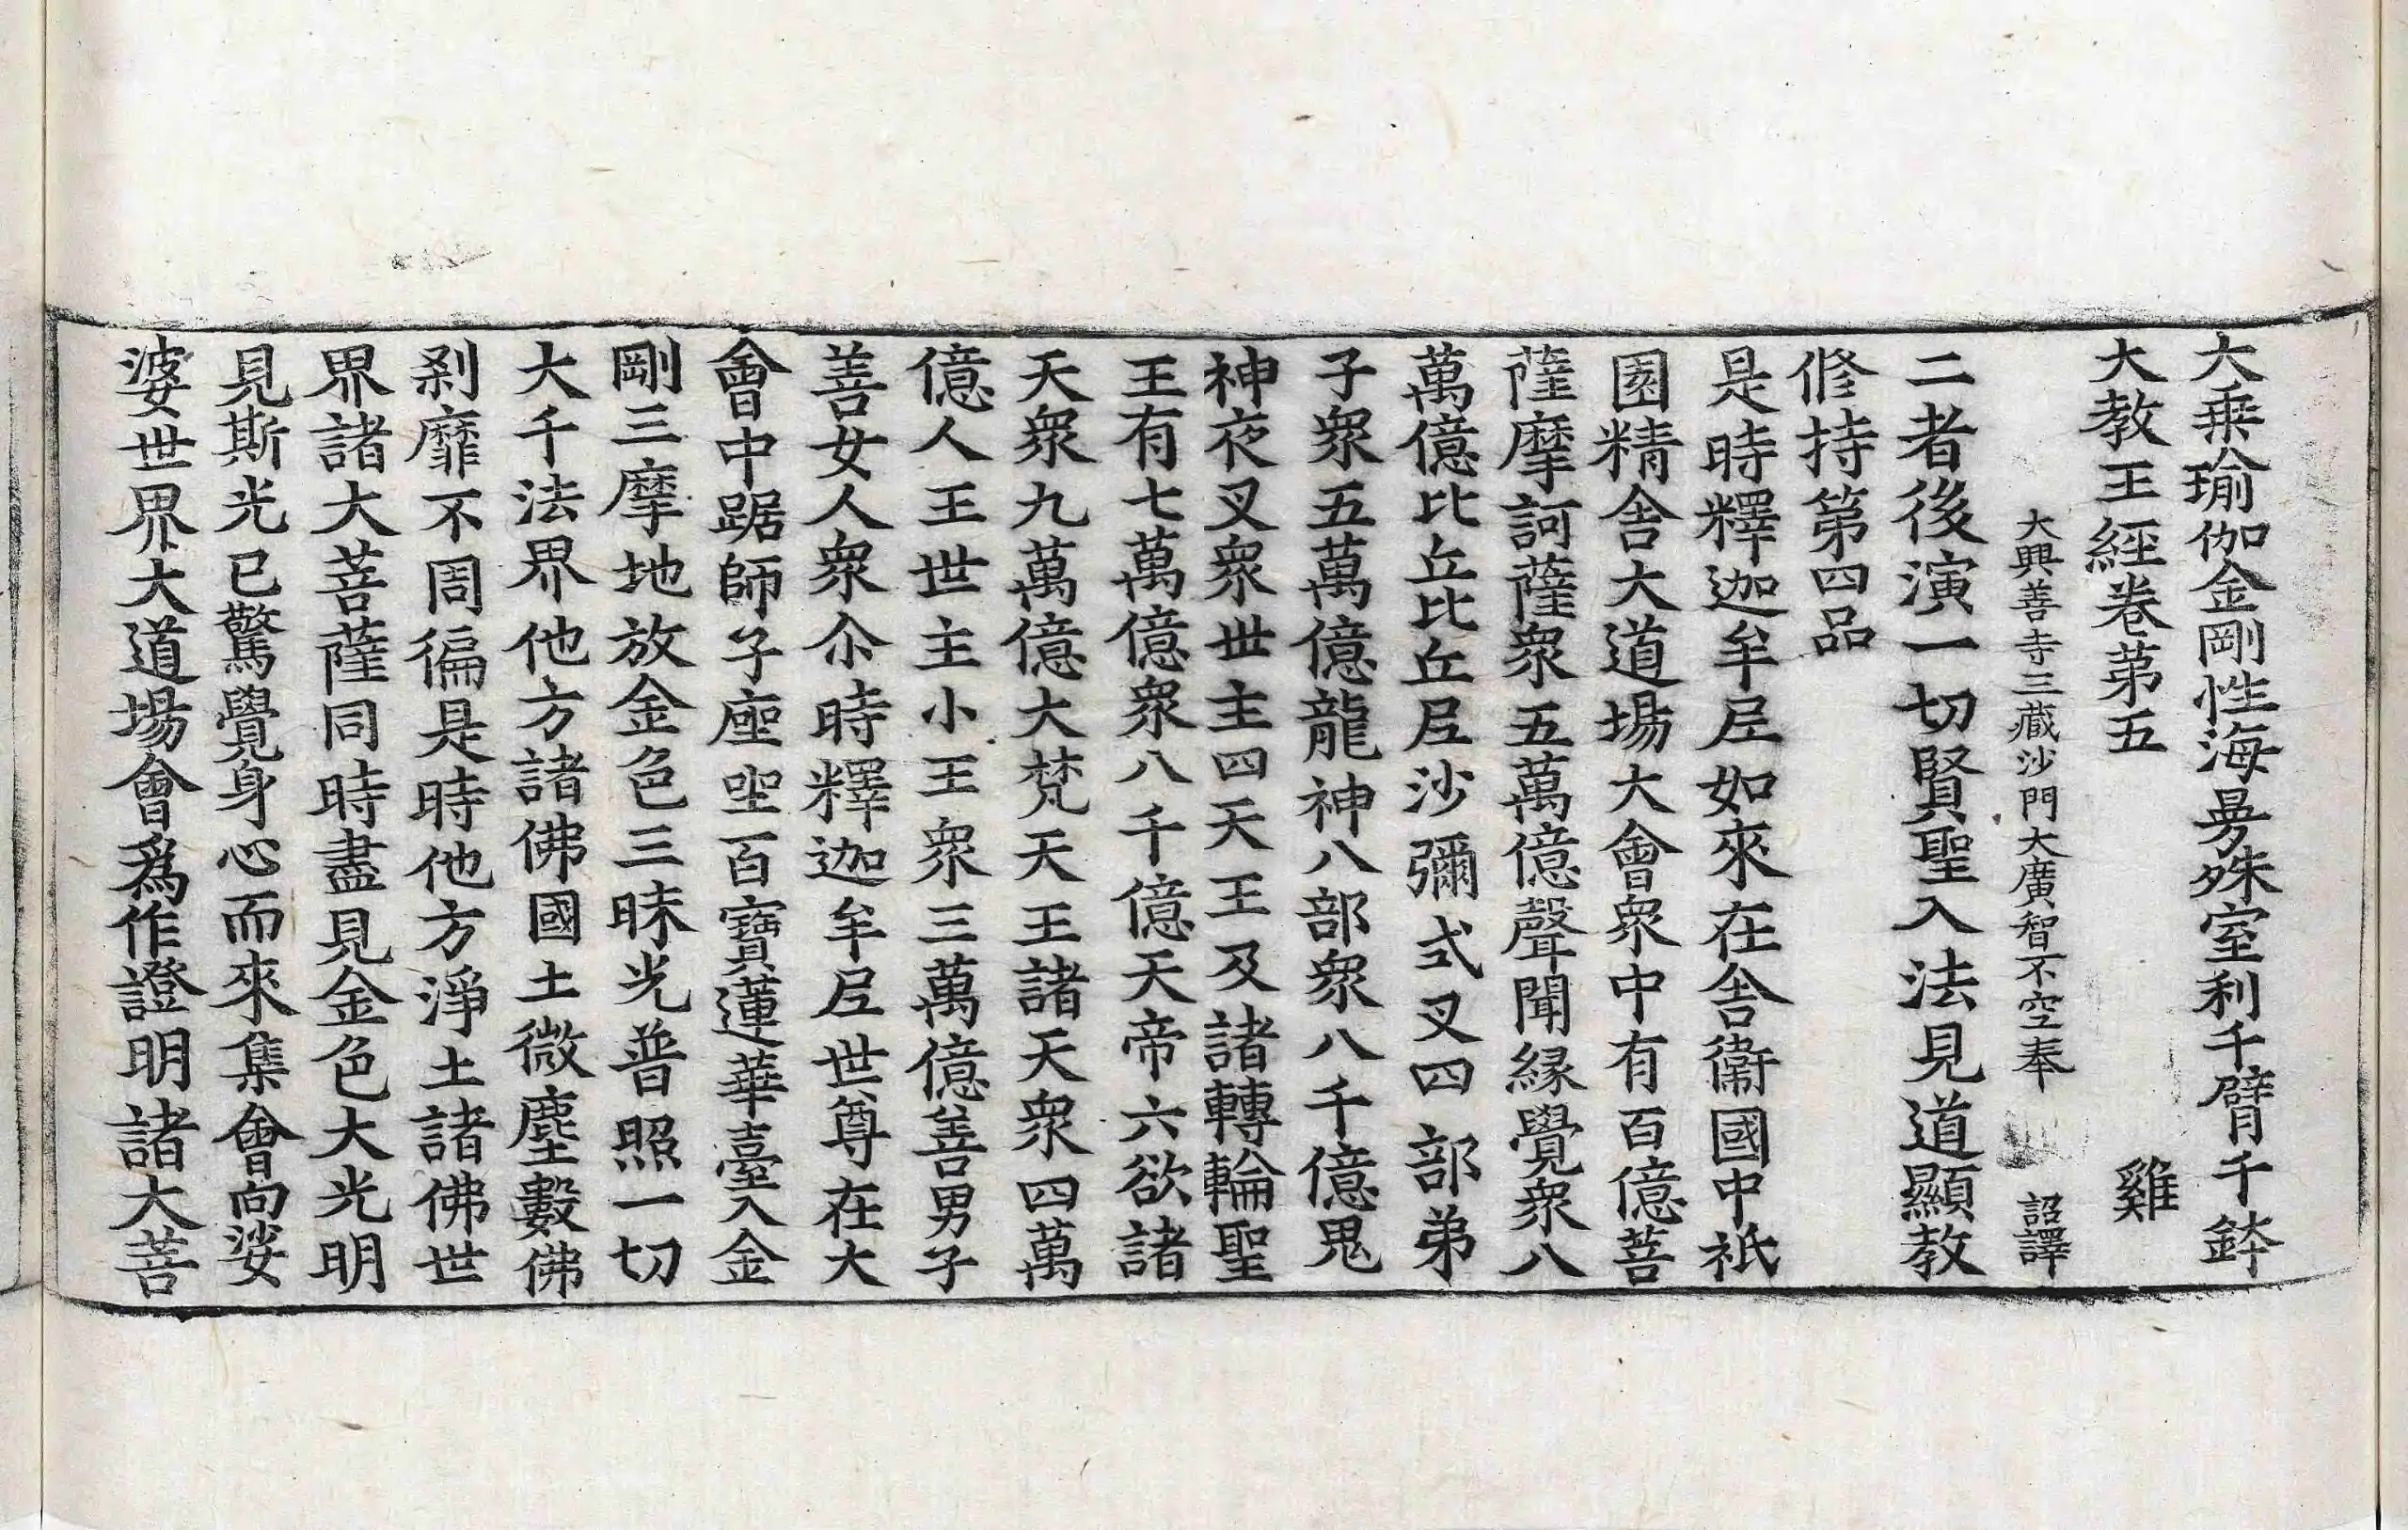 大乗瑜伽金剛性海曼殊室利千臂千鉢
大教王經卷第五　雞
大興善寺三藏沙門大廣智不空奉　詔譯
二者後演一切賢聖入法見道顯教
修持第四品
是時釋迦牟𡰱如來在舎衛國中祇
園精舎大道場大會衆中有百億菩
薩摩訶薩衆五萬億聲聞縁覺衆八
萬億比丘比丘𡰱沙彌式叉四部弟
子衆五萬億龍神八部衆八千億鬼
神夜叉衆世主四天王及諸轉輪聖
王有七萬億衆八千億天帝六欲諸
天衆九萬億大梵天王諸天衆四萬
億人王世主小王衆三萬億善男子
善女人衆尒時釋迦牟𡰱世尊在大
會中踞師子座坐百寶蓮華臺入金
剛三摩地放金色三昧光普照一切
大千法界他方諸佛國土微塵數佛
剎靡不周徧是時他方淨土諸佛世
界諸大菩薩同時盡見金色大光明
見斯光已驚覺身心而來集會向娑
婆世界大道場會爲作證明諸大菩